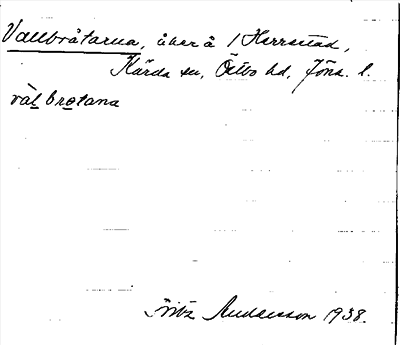 Vallbråtarna, åker å 1 Herrestad,
Kärda sn, Östbo hd, Jöns. l.
väl brotana
Fritz Andersson 1938.